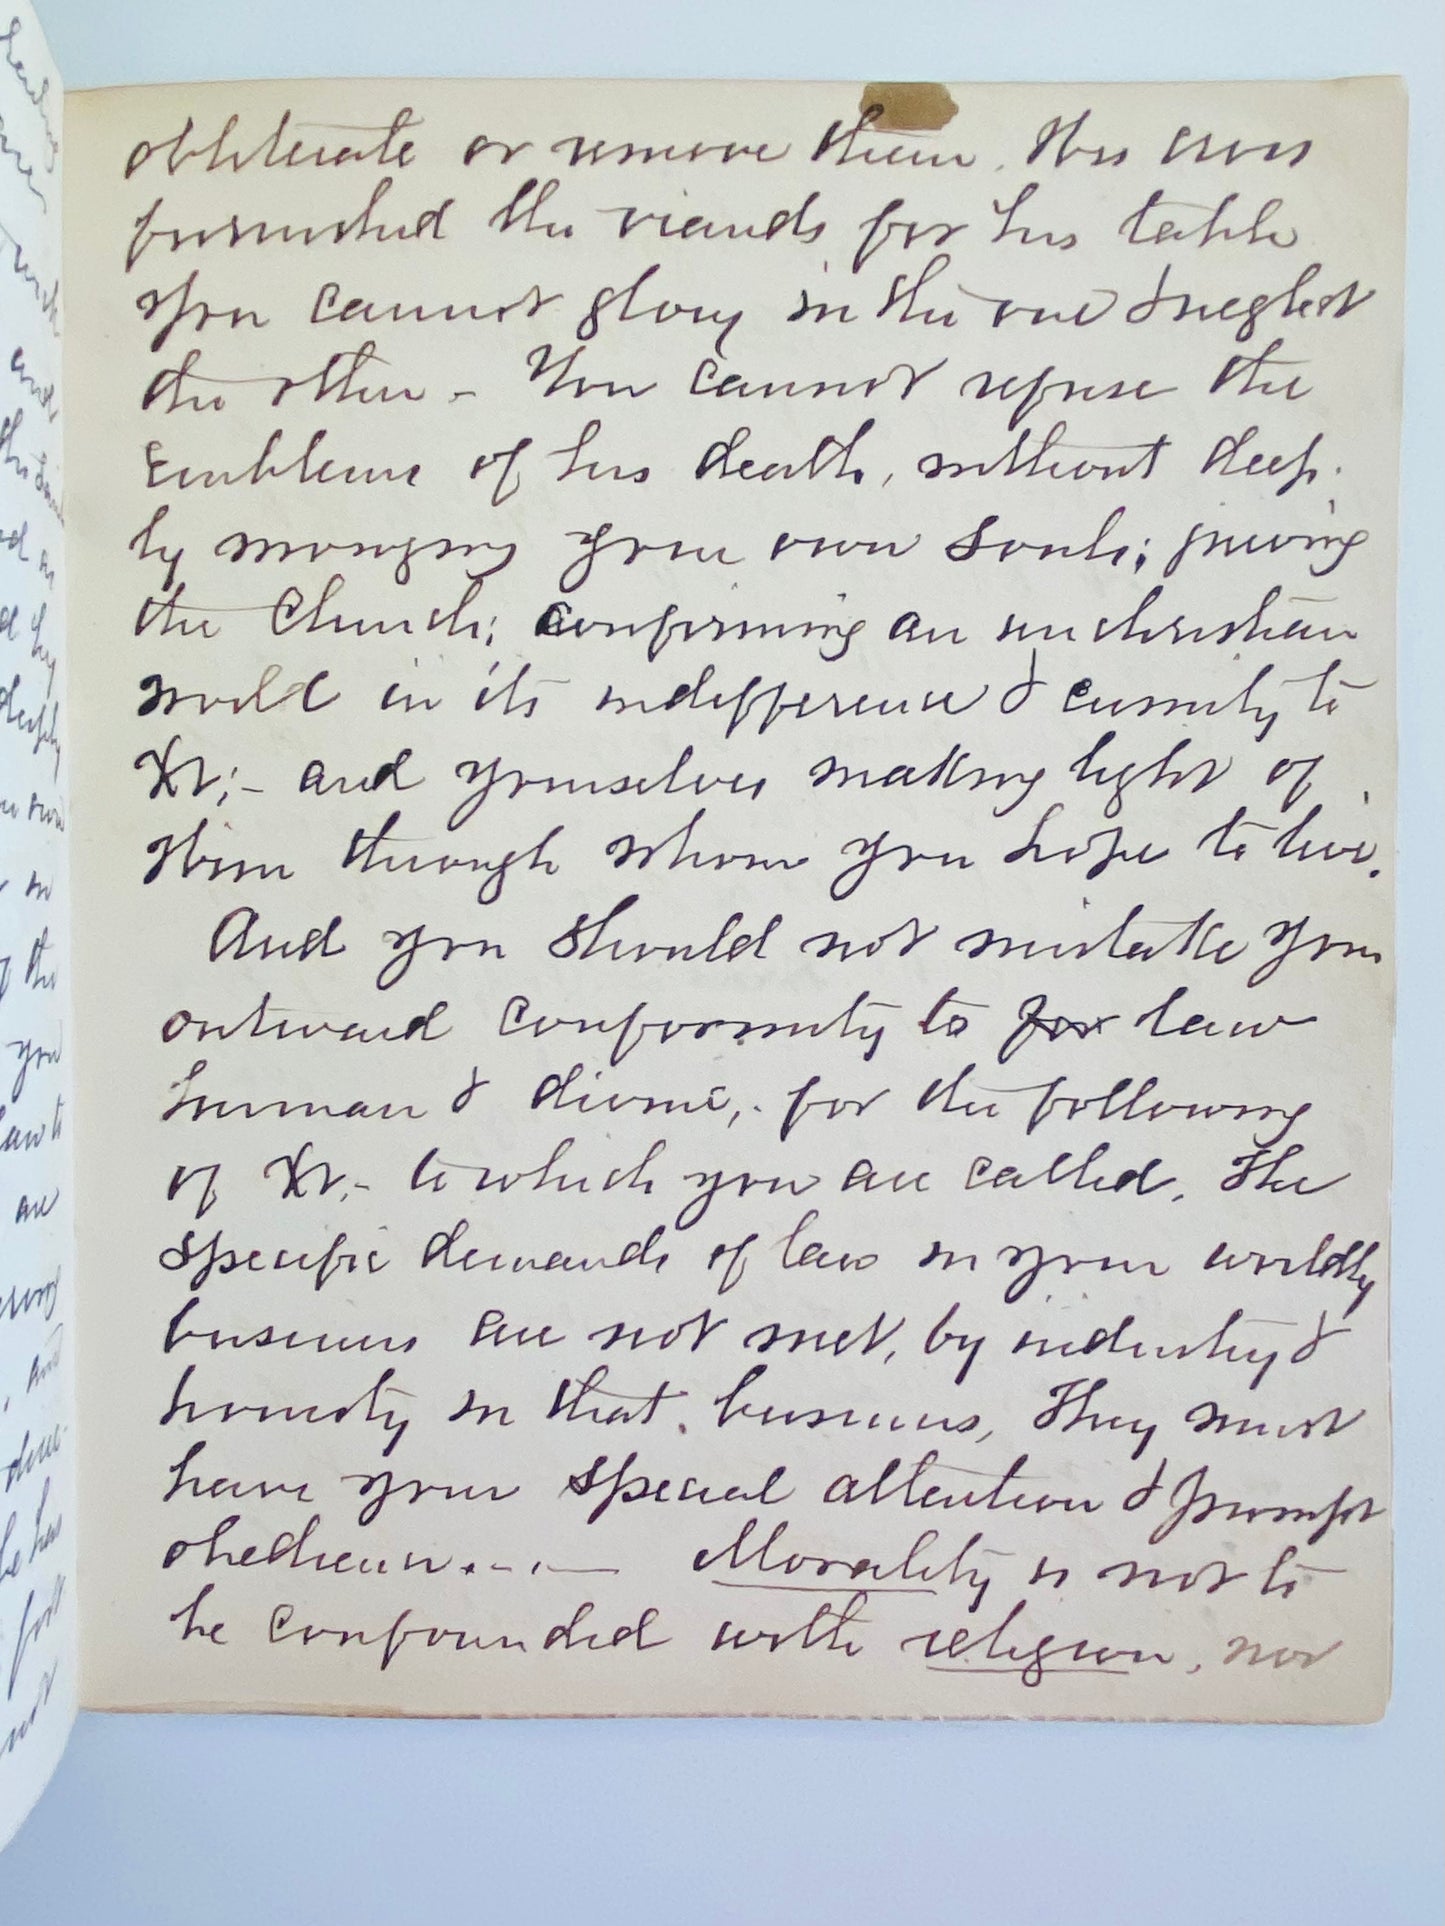 obliterate or remove them. His cross
furnished the viands for his table
You cannot glory in the one & neglect
the other - You cannot refuse the
Emblems of his death, without deep-
ly wronging your own souls; grieving
the Church; confirming an unchristian
world in its indifference & enmity to
Xt;- and yourselves making light of
Him through whom you hope to live.
And you should not mistake your
outward conformity to for law
human & divine, for the following
of Xt,- to which you are called. The
specific demands of law in your worldly
business are not met, by industry &
honesty in that business, They must
have your special attention & prompt
obedience.-.— Morality is not to
be confounded with religion, nor
and
the
you
are